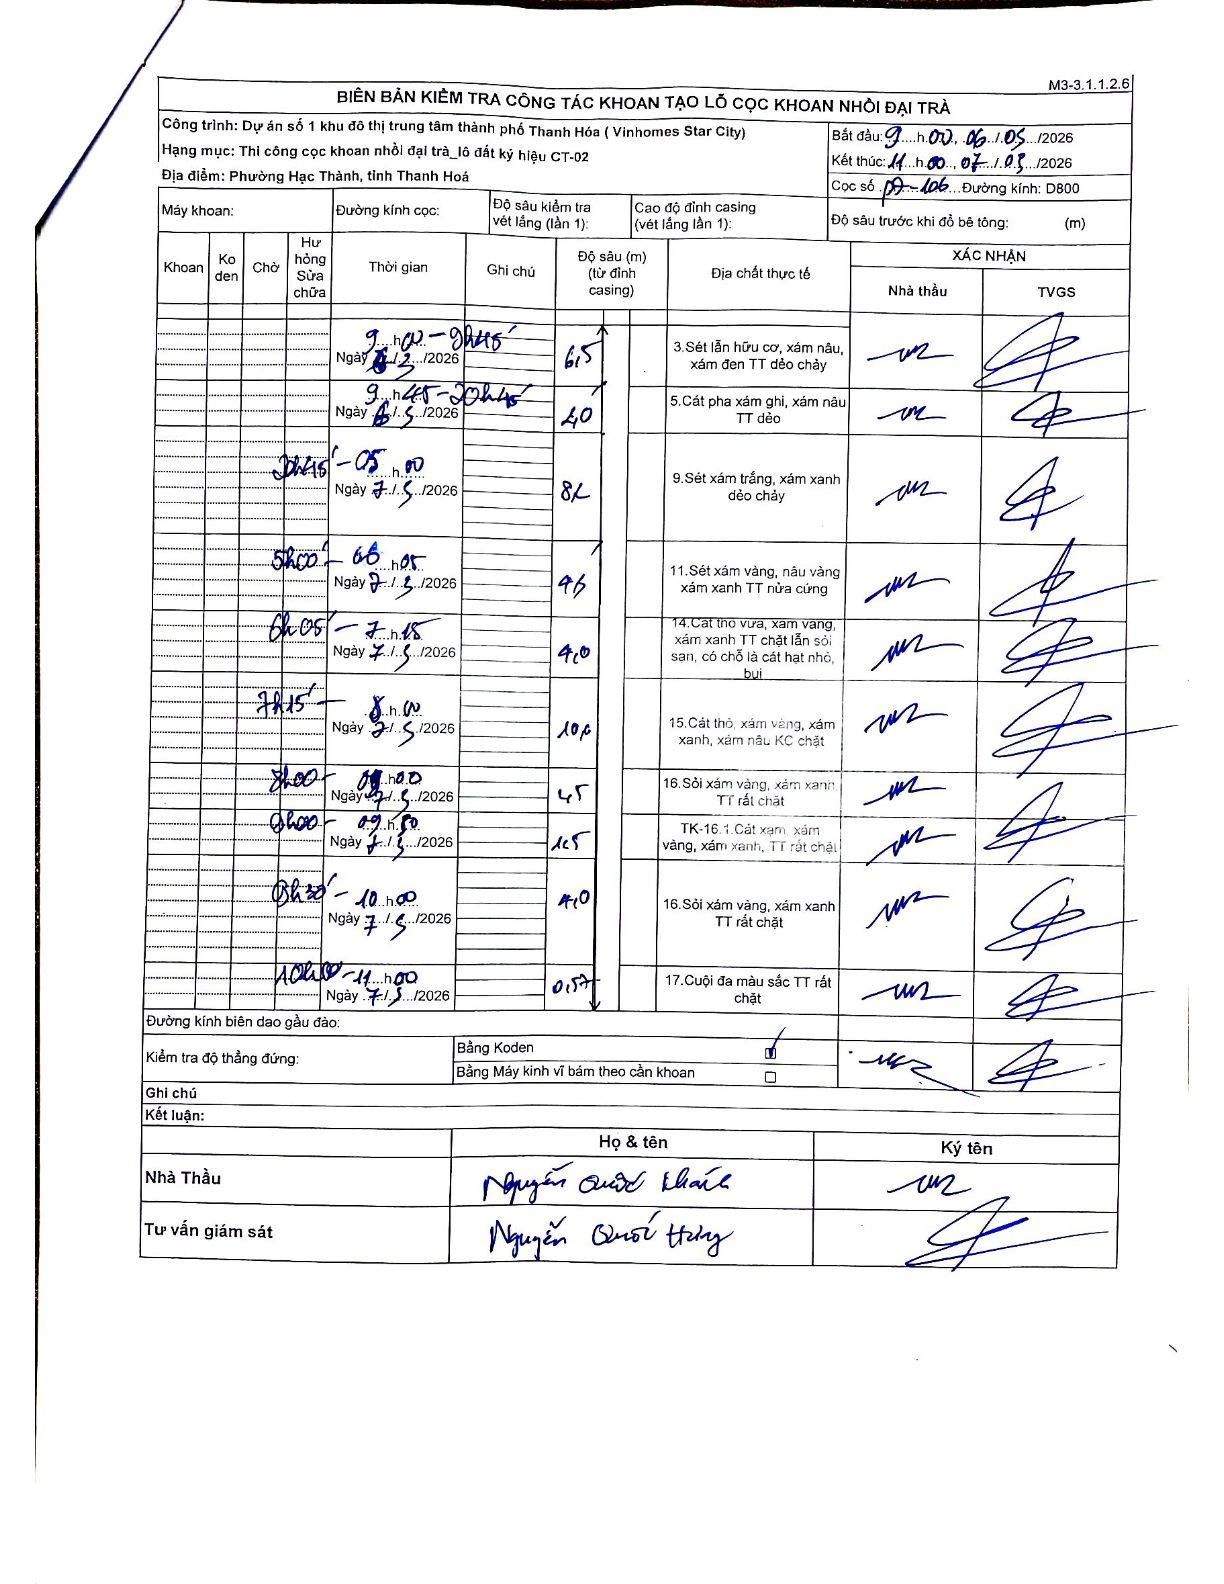 M3-3.1.1.2.6
BIÊN BẢN KIỂM TRA CÔNG TÁC KHOAN TẠO LỖ CỌC KHOAN NHỒI ĐẠI TRÀ
Công trình: Dự án số 1 khu đô thị trung tâm thành phố Thanh Hóa ( Vinhomes Star City)
Hạng mục: Thi công cọc khoan nhồi đại trà_lô đất ký hiệu CT-02
Địa điểm: Phường Hạc Thành, tỉnh Thanh Hoá
Bắt đầu: 9 h.00, 06/05/2026
Kết thúc: 11 h.00, 07/05/2026
Cọc số Đường kính: D800
Máy khoan:
Đường kính cọc:
Độ sâu kiểm tra vét lắng (lần 1):
Cao độ đỉnh casing (vét lắng lần 1):
Độ sâu trước khi đổ bê tông: (m)
Khoan
Ko den
Chờ
Hư hỏng Sửa chữa
Thời gian
Ghi chú
Độ sâu (m) (từ đỉnh casing)
Địa chất thực tế
XÁC NHẬN
Nhà thầu
TVGS
9 h 00 - 9h45'
Ngày 6/5/2026
6,5
3.Sét lẫn hữu cơ, xám nâu, xám đen TT dẻo chảy
9 h 45 - 20h45'
Ngày 6/5/2026
5.Cát pha xám ghi, xám nâu TT dẻo
20h45' - 05 h 00
Ngày 7/5/2026
9.Sét xám trắng, xám xanh dẻo chảy
5h00' - 06 h 05
Ngày 7/5/2026
11.Sét xám vàng, nâu vàng xám xanh TT nửa cứng
6h05' - 7 h 15
Ngày 7/5/2026
4,0
14.Cát thô vừa, xám vàng, xám xanh TT chặt lẫn sỏi sạn, có chỗ là cát hạt nhỏ, bụi
7h15' - 8 h 00
Ngày 7/5/2026
15.Cát thô, xám vàng, xám xanh, xám nâu KC chặt
8h00 - 09 h 00
Ngày 7/5/2026
16.Sỏi xám vàng, xám xanh TT rất chặt
9h00 - 09 h 30
Ngày 7/5/2026
1.5
TK-16.1.Cát xám, xám vàng, xám xanh, TT rất chặt
9h30' - 10 h 00
Ngày 7/5/2026
4,0
16.Sỏi xám vàng, xám xanh TT rất chặt
10h00 - 11 h 00
Ngày 7/5/2026
0,57
17.Cuội đa màu sắc TT rất chặt
Đường kính biên dao gầu đào:
Kiểm tra độ thẳng đứng:
Bằng Koden
Bằng Máy kinh vĩ bám theo cần khoan
Ghi chú
Kết luận:
Họ & tên
Ký tên
Nhà Thầu
Nguyễn Quốc Khánh
Tư vấn giám sát
Nguyễn Quốc Hưng